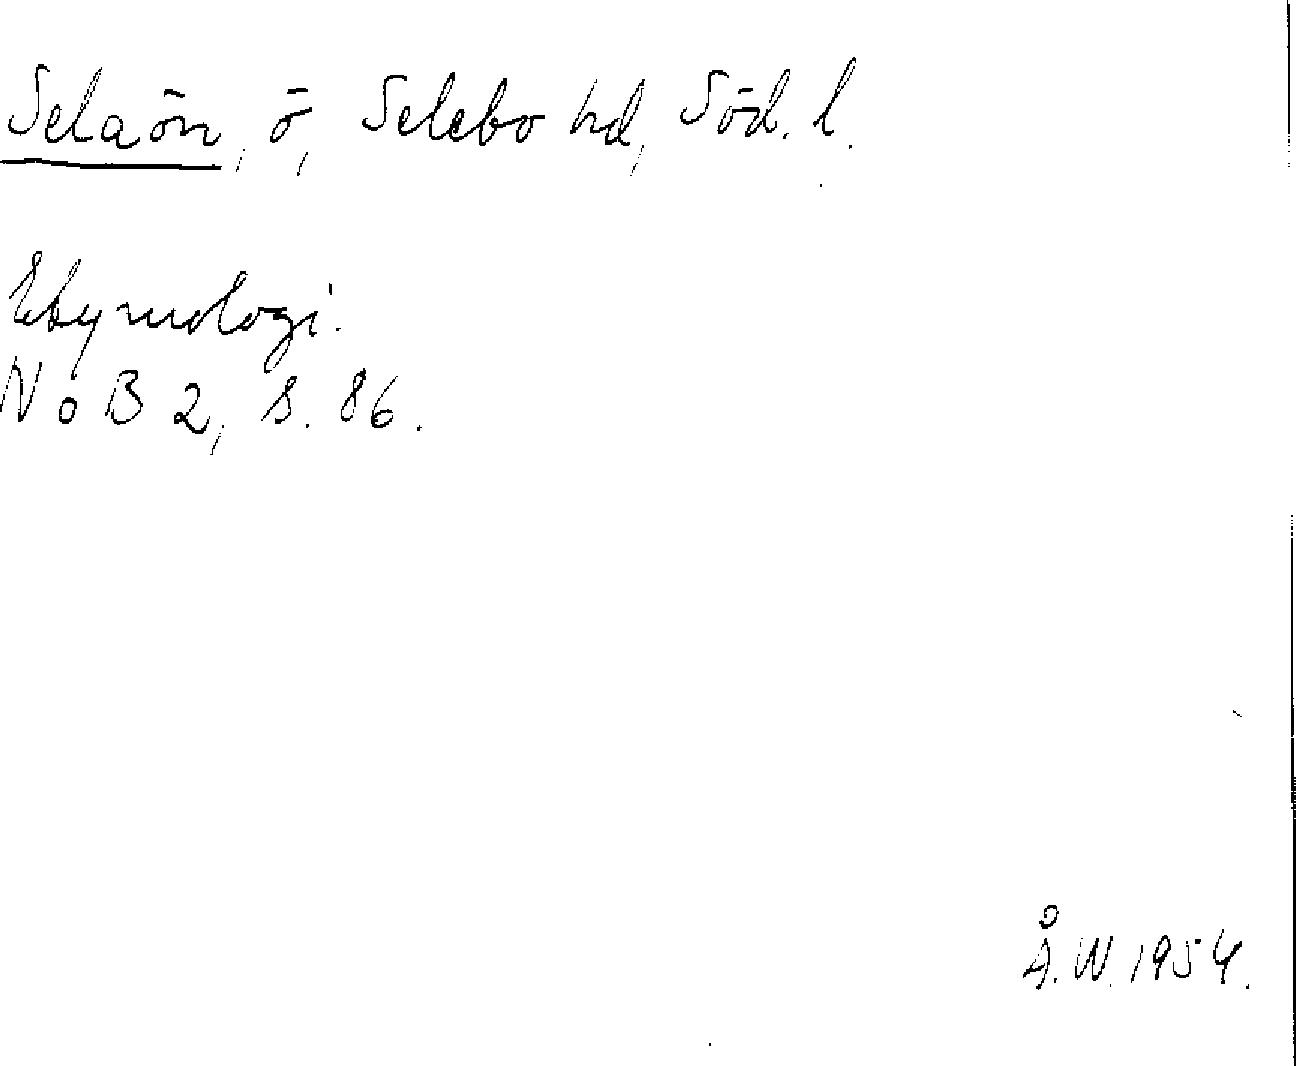 Selaön, ö, Selebo hd, Söd. l.
Etymologi.
NoB 2, s. 86.
Å.W. 1954.